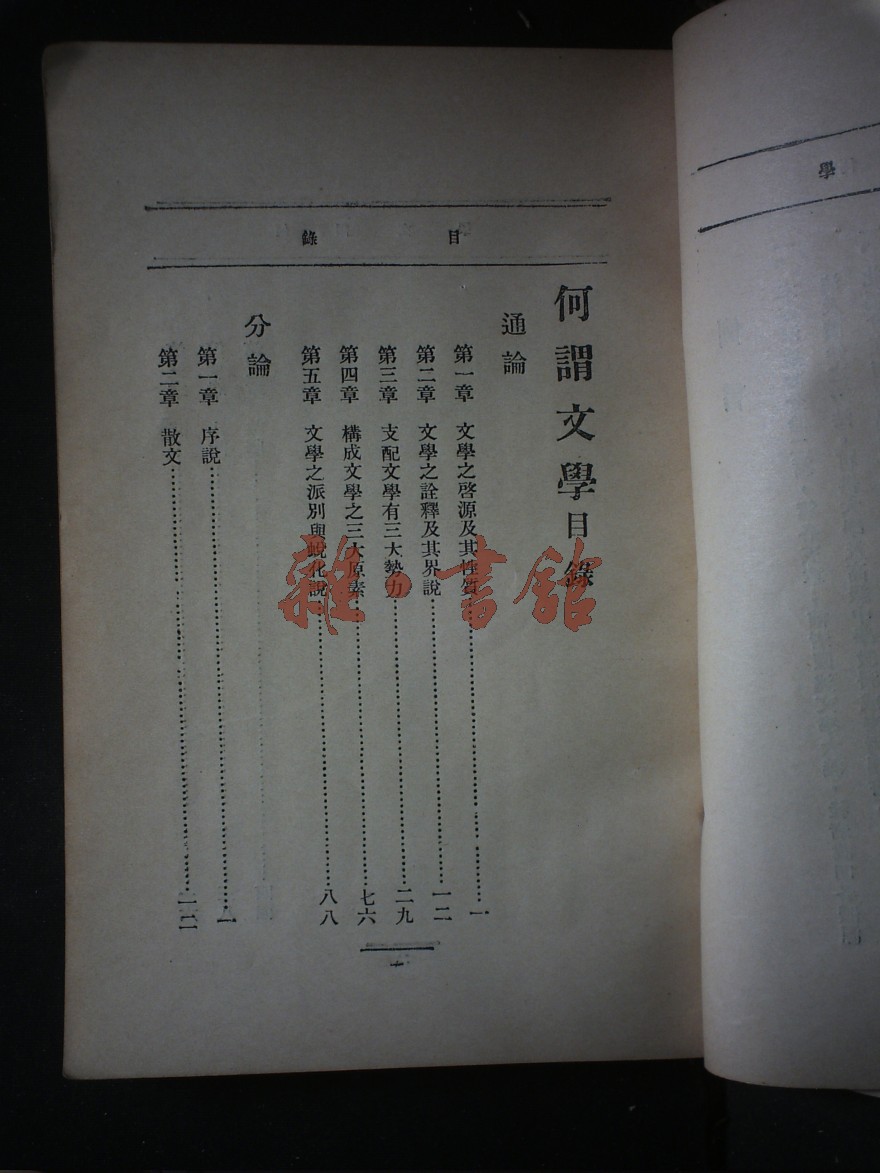 目錄
何謂文學目錄
通論
第一章 文學之啓源及其性質……一
第二章 文學之詮釋及其界說……一二
第三章 支配文學有三大勢力……二九
第四章 構成文學之三大原素……七六
第五章 文學之派別與蛻化說……八八
分論
第一章 序說……一
第二章 散文……一二
一
學
雜·書館